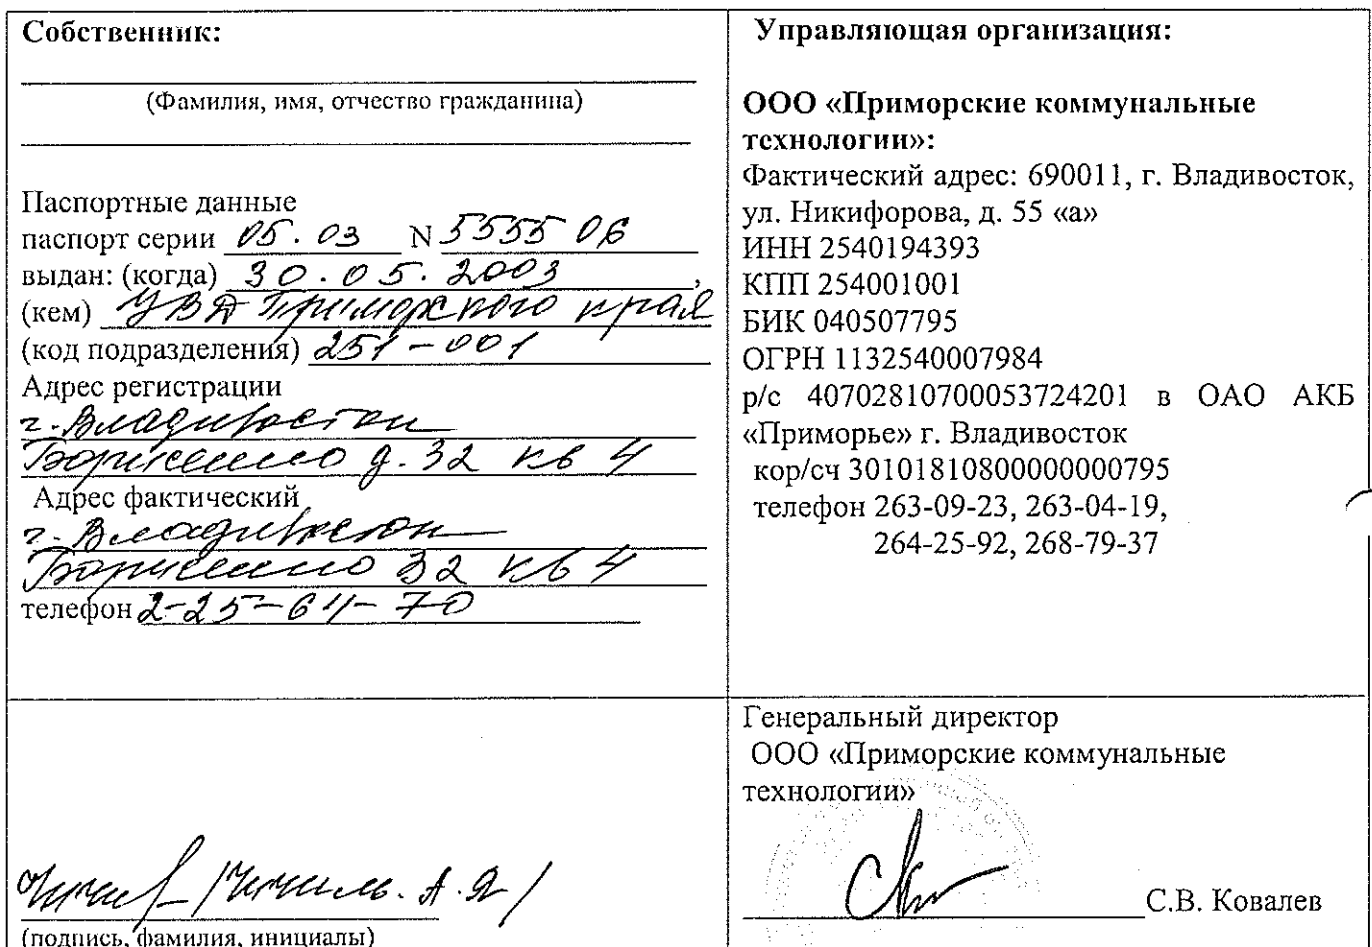 Собственник:
(Фамилия, имя, отчество гражданина)
Паспортные данные
паспорт серии 05.03 N 5555 06
выдан: (когда) 30.05.2003,
(кем) УВД Приморского края
(код подразделения) 251-001
Адрес регистрации
г. Владивосток
д. 32 кв 4
Адрес фактический
г. Владивосток
32 кв 4
телефон 2-25-64-70
(подпись, фамилия, инициалы)
Управляющая организация:
ООО «Приморские коммунальные
технологии»:
Фактический адрес: 690011, г. Владивосток,
ул. Никифорова, д. 55 «а»
ИНН 2540194393
КПП 254001001
БИК 040507795
ОГРН 1132540007984
р/с 40702810700053724201 в ОАО АКБ
«Приморье» г. Владивосток
кор/сч 30101810800000000795
телефон 263-09-23, 263-04-19,
264-25-92, 268-79-37
Генеральный директор
ООО «Приморские коммунальные
технологии»
С.В. Ковалев